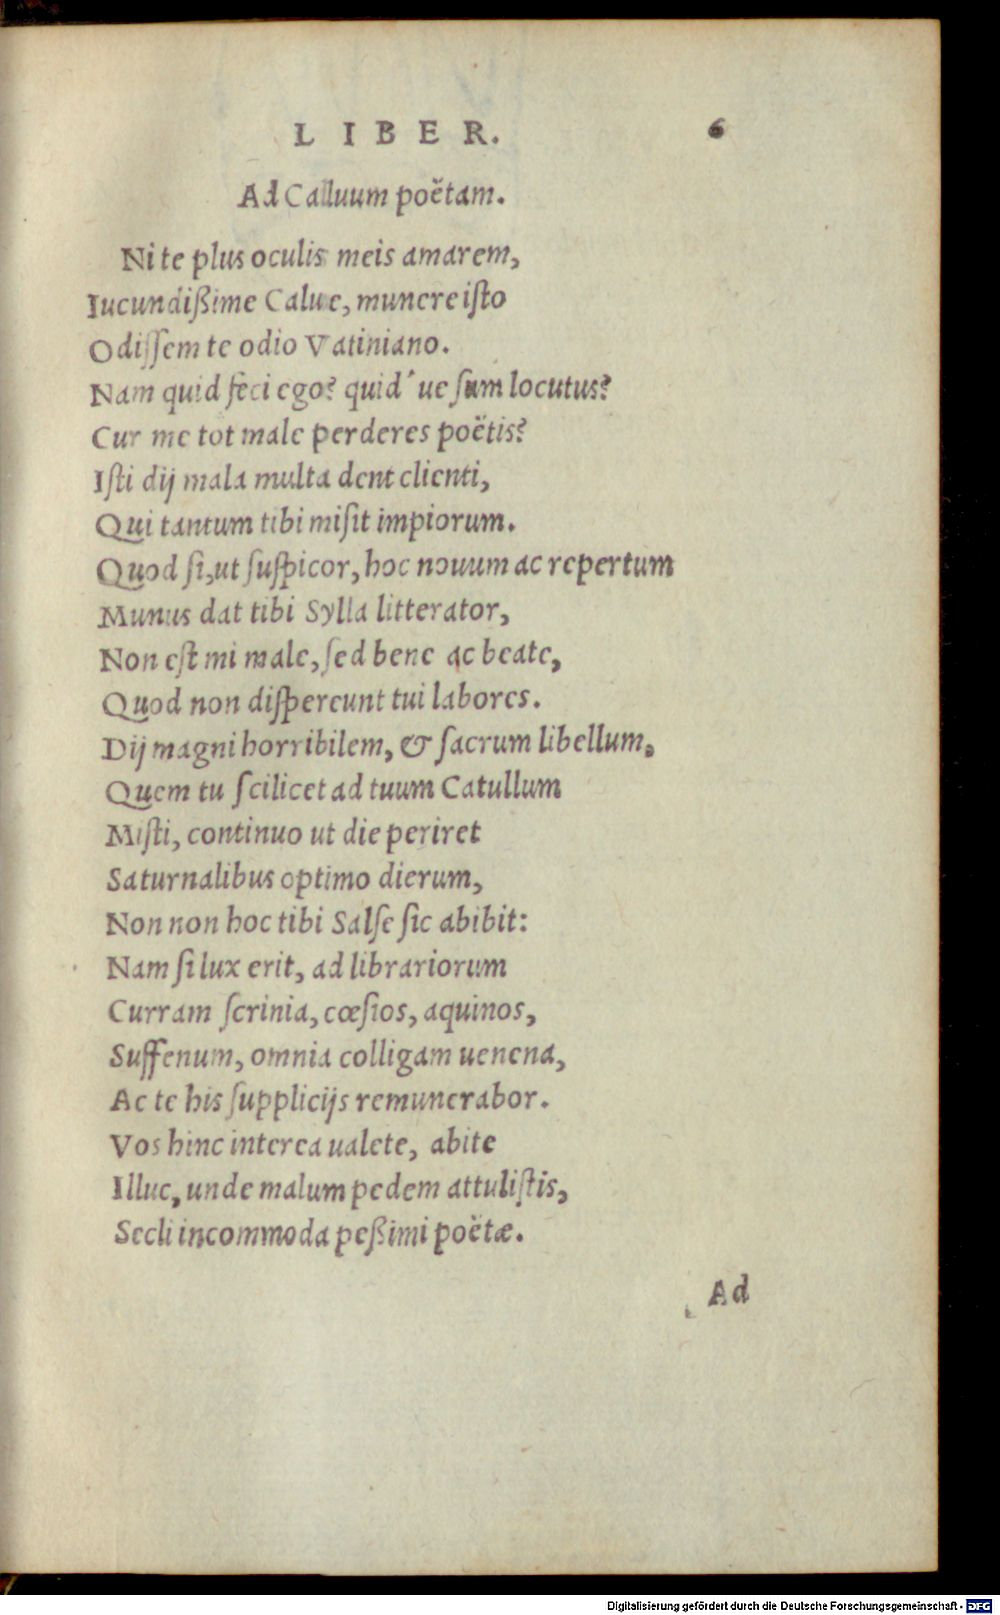 LIBER. 6
Ad Calluum poëtam.
Ni te plus oculis meis amarem,
Iucundißime Calue, munere iſto
Odiſſem te odio Vatiniano.
Nam quid feci ego? quid´ue ſum locutus?
Cur me tot male perderes poëtis?
Iſti dij mala multa dent clienti,
Qui tantum tibi miſit impiorum.
Quod ſi, ut ſuſpicor, hoc nouum ac repertum
Munus dat tibi Sylla litterator,
Non eſt mi male, ſed bene ac beate,
Quod non diſpereunt tui labores.
Dij magni horribilem, & ſacrum libellum,
Quem tu ſcilicet ad tuum Catullum
Miſti, continuo ut die periret
Saturnalibus optimo dierum,
Non non hoc tibi Salſe ſic abibit:
Nam ſi lux erit, ad librariorum
Curram ſcrinia, cœſios, aquinos,
Suffenum, omnia colligam uenena,
Ac te his ſupplicijs remunerabor.
Vos hinc interea ualete, abite
Illuc, unde malum pedem attuliſtis,
Secli incommoda peßimi poëtæ.
Ad
Digitalisierung gefördert durch die Deutsche Forschungsgemeinschaft - DFG